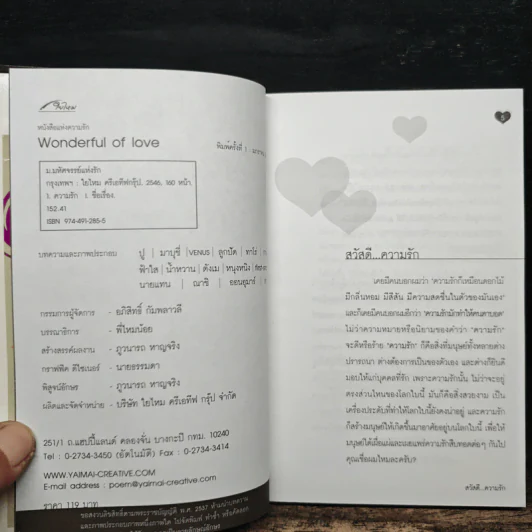 ใยไหม
หนังสือแห่งความรัก
Wonderful of love
พิมพ์ครั้งที่ 1
ม.มหัศจรรย์แห่งรัก
กรุงเทพฯ : ใยไหม ครีเอทีฟกรุ๊ป, 2546. 160 หน้า.
1. ความรัก 1. ชื่อเรื่อง.
152.41
ISBN 974-491-285-5
บทความและภาพประกอบ ปู | มาบูชี่ | VENUS | ลูกปัด | ทาโร่
ฟ้าใส | น้ำหวาน | ดังเม | หนุงหนิง
นายแทน | ณาชิ | ออนอุมาร์
กรรมการผู้จัดการ - อภิสิทธิ์ กัมพลาวลี
บรรณาธิการ - พี่ไหมน้อย
สร้างสรรค์ผลงาน - ภูวนารถ หาญจริง
กราฟฟิค ดีไซเนอร์ - นายธรรมดา
พิสูจน์อักษร - ภูวนารถ หาญจริง
ผลิตและจัดจำหน่าย - บริษัท ใยไหม ครีเอทีฟ กรุ๊ป จำกัด
251/1 ถ.แฮปปี้แลนด์ คลองจั่น บางกะปิ กทม. 10240
Tel : 0-2734-3450 (อัตโนมัติ) Fax : 0-2734-3414
WWW.YAIMAI-CREATIVE.COM
E-mail address : poem@yaimai-creative.com
ราคา 119 บาท
ขอสงวนลิขสิทธิ์ตามพระราชบัญญัติ พ.ศ. 2537 ห้ามนำบทความ
และภาพประกอบภาพหนึ่งภาพใด ไปจัดพิมพ์ ทำซ้ำ หรือคัดลอก
สวัสดี...ความรัก
เคยมีคนบอกผมว่า "ความรักก็เหมือนดอกไม้
มีกลิ่นหอม มีสีสัน มีความสดชื่นในตัวของมันเอง"
และก็เคยมีคนบอกผมอีกว่า "ความรักมักทำให้คนตาบอด"
ไม่ว่าความหมายหรือนิยามของคำว่า "ความรัก"
จะดีหรือร้าย "ความรัก" ก็คือสิ่งที่มนุษย์ทั้งหลายต่าง
ปรารถนา ต่างต้องการเป็นของตัวเอง และต่างก็ยินดี
มอบให้แก่บุคคลที่รัก เพราะความรักนั้น ไม่ว่าจะอยู่
ตรงส่วนไหนของโลกใบนี้ มันก็คือสิ่งสวยงาม เป็น
เครื่องประดับที่ทำให้โลกใบนี้ยังคงน่าอยู่ และความรัก
ก็สร้างมนุษย์ให้เกิดขึ้นมาอาศัยอยู่บนโลกใบนี้ เพื่อให้
มนุษย์ได้เผื่อแผ่และเผยแพร่ความรักสืบทอดต่อๆ กันไป
คุณเชื่อผมไหมละครับ?
สวัสดี...ความรัก